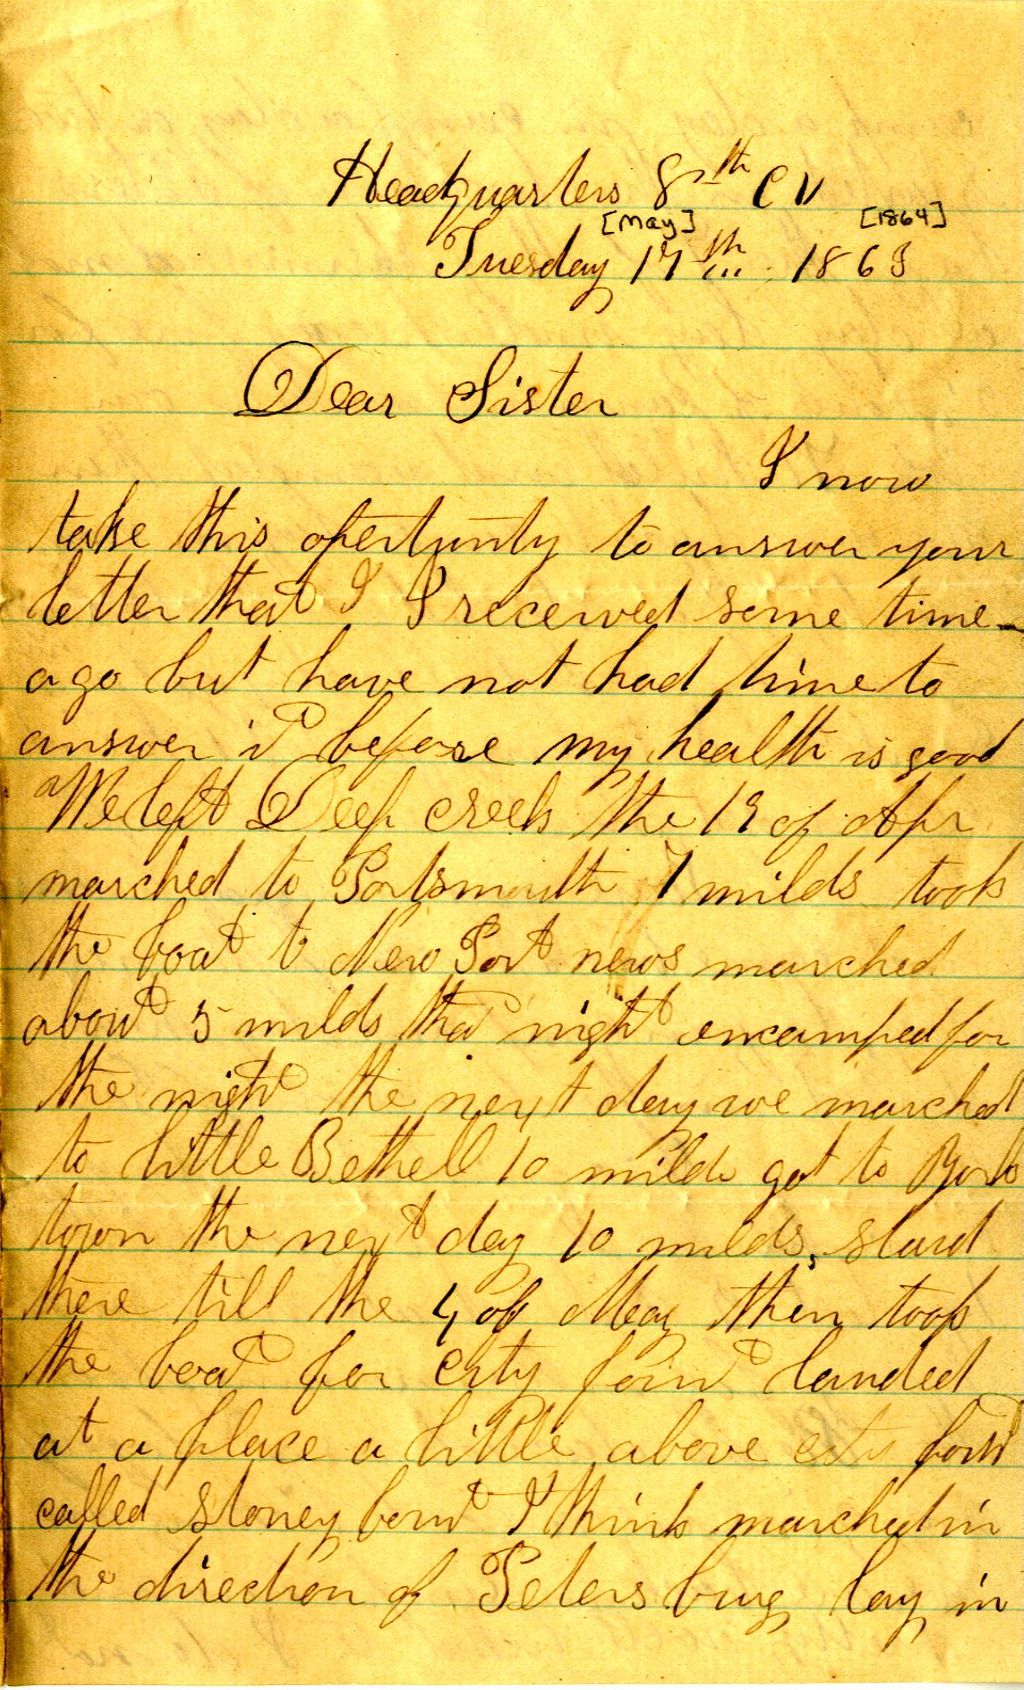 Headquarters 8th C V
[May] [1864]
Tuesday 17th 1863
Dear Sister
I now
take this opertunity to answer your
letter that I I received some time
ago but have not had time to
answer it before my health is good
We left Deep creek the 19 of Apr
marched to Portsmouth 7 milds took
the boat to New Port news marched
about 5 milds that night encamped for
the night the next day we marched
to little Bethell 10 milds got to York
town the next day 10 milds, staid
there till the 4 of May then took
the boat for City point landed
at a place a little above city point
called stoney point I think marched in
the direction of Petersburg lay in